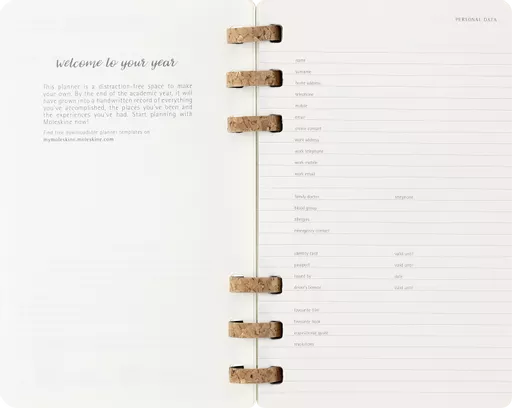 welcome to your year
This planner is a distraction-free space to make
your own. By the end of the academic year, it will
have grown into a handwritten record of everything
you've accomplished, the places you've been and
the experiences you've had. Start planning with
Moleskine now!
Find free downloadable planner templates on
mymoleskine.moleskine.com
PERSONAL DATA
name
surname
home address
telephone
mobile
email
work address
work telephone
work mobile
work email
family doctor telephone
blood group
allergies
emergency contact
identity card valid until
passport valid until
driver's licence valid until
favourite film
favourite book